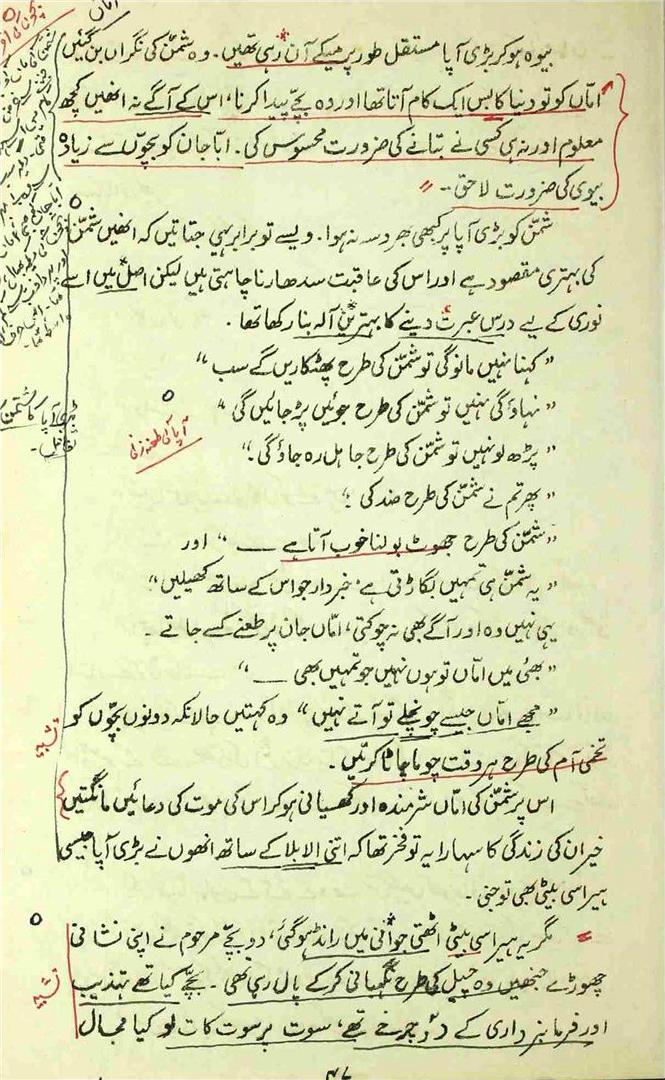 بیوہ ہو کر بڑی آپا مستقل طور پر میکے آن رہی تھیں۔ وہ شمّن کی نگراں بن گئیں
امّاں کو تو دنیا کا بس ایک کام آتا تھا اور وہ بچّے پیدا کرنا، اس کے آگے نہ انھیں کچھ
معلوم اور نہ ہی کسی نے بتانے کی ضرورت محسوس کی۔ ابّا جان کو بچّوں سے زیادہ
بیوی کی ضرورت لاحق۔
شمّن کو بڑی آپا پر کبھی بھروسہ نہ ہوا۔ ویسے تو برابر یہی جتاتیں کہ انھیں شمّن
کی بہتری مقصود ہے اور اس کی عاقبت سدھارنا چاہتی ہیں لیکن اصل میں اسے
نوری کے لیے درسِ عبرت دینے کا بہترین آلہ بنا رکھا تھا۔
"کہنا نہیں مانو گی تو شمّن کی طرح پھٹکاریں گے سب"
"نہاؤ گی نہیں تو شمّن کی طرح جوئیں پڑ جائیں گی"
آپا کی طعنہ زنی
"پڑھ لو نہیں تو شمّن کی طرح جاہل رہ جاؤ گی۔"
"پھر تم نے شمّن کی طرح ضد کی!"
"شمّن کی طرح جھوٹ بولنا خوب آتا ہے ــــ" اور
"یہ شمّن ہی تمہیں بگاڑتی ہے، خبردار جو اس کے ساتھ کھیلیں"
یہی نہیں وہ اور آگے بھی نہ چوکتی، امّاں جان پر طعنے کسے جاتے۔
"بھئی میں امّاں تو ہوں نہیں جو تمہیں بھی ــــ"
"مجھے امّاں جیسے چونچلے تو آتے نہیں" وہ کہتیں حالانکہ دونوں بچّوں کو
تخمی آم کی طرح ہر وقت چوما چاٹا کرتیں۔
اس پر شمّن کی امّاں شرمندہ اور کھسیانی ہو کر اس کی موت کی دعائیں مانگتیں
خیر ان کی زندگی کا سہارا یہ تو فخر تھا کہ اتنی الابلا کے ساتھ انھوں نے بڑی آپا جیسی
ہیرا سی بیٹی بھی تو جنی۔
مگر یہ ہیرا سی بیٹی اٹھتی جوانی میں رانڈ ہو گئی، دو بچّے مرحوم نے اپنی نشانی
چھوڑے جنھیں وہ چیل کی طرح نگہبانی کر کے پال رہی تھی۔ بچّے کیا تھے تہذیب
اور فرمانبرداری کے دو چرخے تھے، سوت پر سوت کات لو کیا مجال
۴۷